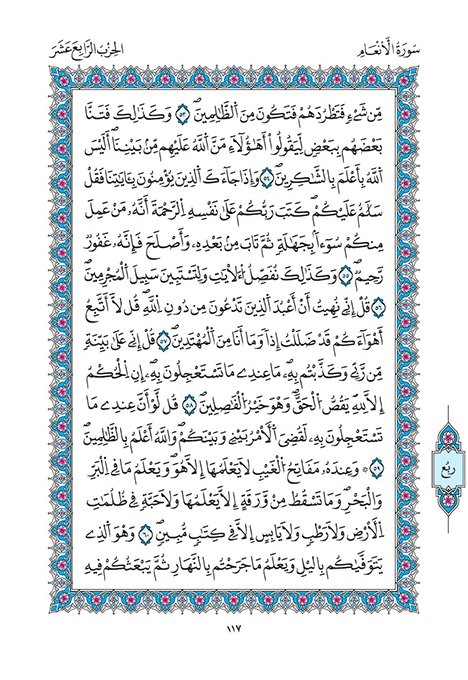 سُورَةُ الْأَنْعَامِ
الْحِزْبُ الرَّابِعَ عَشَرَ
مِّن شَيْءٍ فَتَطْرُدَهُمْ فَتَكُونَ مِنَ ٱلظَّٰلِمِينَ ٥٣ وَكَذَٰلِكَ فَتَنَّا
بَعْضَهُم بِبَعْضٍ لِّيَقُولُوٓاْ أَهَٰٓؤُلَآءِ مَنَّ ٱللَّهُ عَلَيْهِم مِّنۢ بَيْنِنَآ أَلَيْسَ
ٱللَّهُ بِأَعْلَمَ بِالشَّٰكِرِينَ ٥٤ وَإِذَا جَآءَكَ ٱلذِينَ يُؤْمِنُونَ بِـَٔايَٰتِنَا فَقُلْ
سَلَٰمٌ عَلَيْكُمْ كَتَبَ رَبُّكُمْ عَلَىٰ نَفْسِهِ ٱلرَّحْمَةَ أَنَّهُۥ مَنْ عَمِلَ
مِنكُمْ سُوٓءًۢا بِجَهَٰلَةٍ ثُمَّ تَابَ مِنۢ بَعْدِهِۦ وَأَصْلَحَ فَإِنَّهُۥ غَفُورٌ
رَّحِيمٌ ٥٥ وَكَذَٰلِكَ نُفَصِّلُ ٱلْأٓيَٰتِ وَلِتَسْتَبِينَ سَبِيلَ ٱلْمُجْرِمِينَ
٥٦ قُلْ إِنِّي نُهِيتُ أَنْ أَعْبُدَ ٱلذِينَ تَدْعُونَ مِن دُونِ ٱللَّهِ قُل لَّآ أَتَّبِعُ
أَهْوَآءَكُمْ قَدْ ضَلَلْتُ إِذًا وَمَآ أَنَا مِنَ ٱلْمُهْتَدِينَ ٥٧ قُلْ إِنِّي عَلَىٰ بَيِّنَةٍ
مِّن رَّبِّي وَكَذَّبْتُم بِهِۦ مَا عِندِي مَا تَسْتَعْجِلُونَ بِهِۦٓ إِنِ ٱلْحُكْمُ
إِلَّا لِلهِ يَقُصُّ ٱلْحَقَّ وَهُوَ خَيْرُ ٱلْفَٰصِلِينَ ٥٨ قُل لَّوْ أَنَّ عِندِي مَا
تَسْتَعْجِلُونَ بِهِۦ لَقُضِيَ ٱلْأَمْرُ بَيْنِي وَبَيْنَكُمْ وَاللَّهُ أَعْلَمُ بِالظَّٰلِمِينَ
٥٩ ۞ وَعِندَهُۥ مَفَاتِحُ ٱلْغَيْبِ لَا يَعْلَمُهَآ إِلَّا هُوَ وَيَعْلَمُ مَا فِي ٱلْبَرِّ
وَالْبَحْرِ وَمَا تَسْقُطُ مِنْ وَّرَقَةٍ إِلَّا يَعْلَمُهَا وَلَا حَبَّةٍ فِي ظُلُمَٰتِ
ٱلْأَرْضِ وَلَا رَطْبٍ وَلَا يَابِسٍ إِلَّا فِي كِتَٰبٍ مُّبِينٍ ٦٠ وَهُوَ ٱلذِي
يَتَوَفَّيٰكُم بِاليْلِ وَيَعْلَمُ مَا جَرَحْتُم بِالنَّهَارِ ثُمَّ يَبْعَثُكُمْ فِيهِ
ربع
١١٧